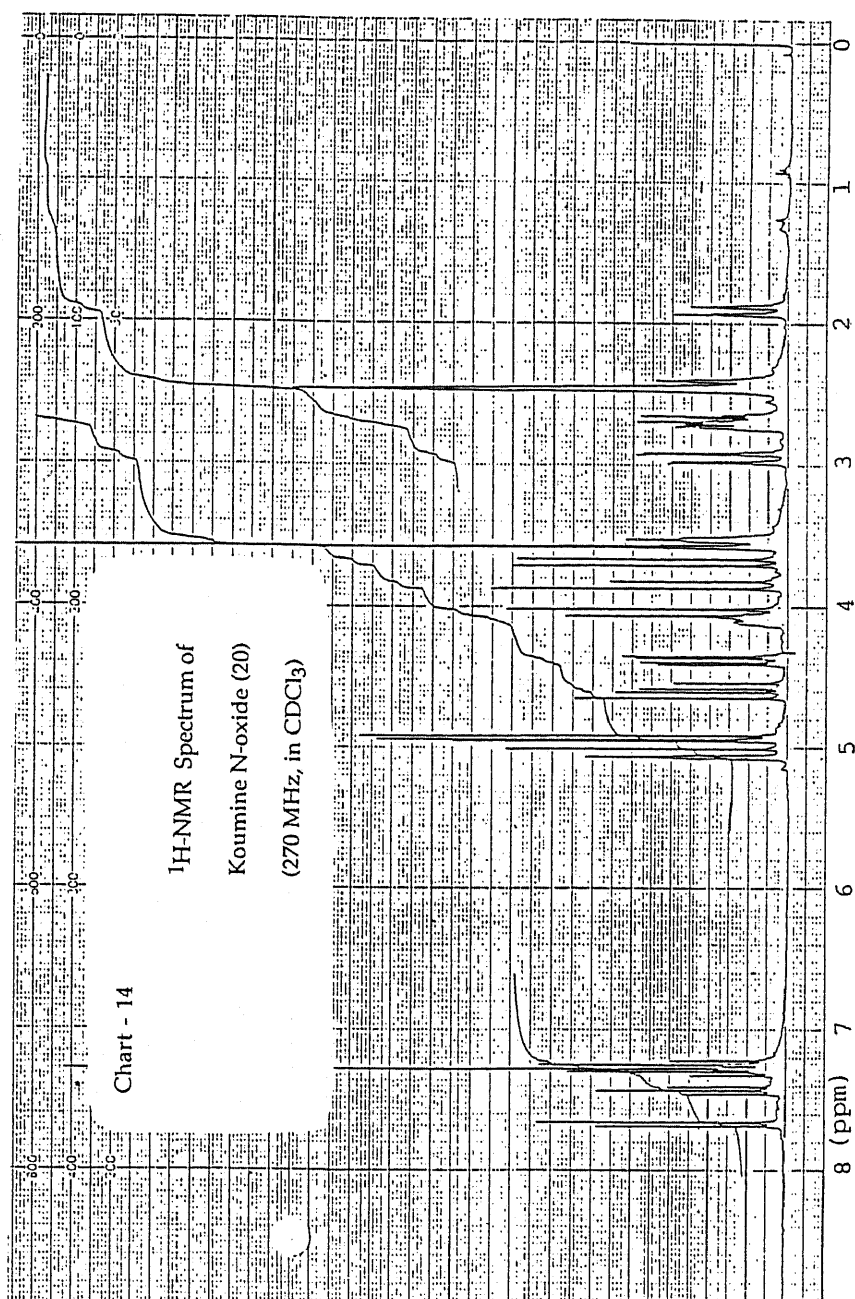 Chart - 14
1H-NMR Spectrum of
Koumine N-oxide (20)
(270 MHz, in CDCl3)
0
1
2
3
4
5
6
7
8 (ppm)